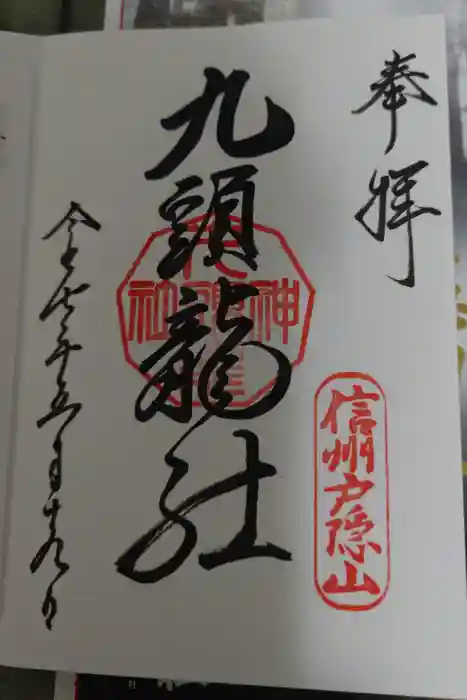 奉拝
信州戸隠山
九頭龍社
戸隠神社
令和元年五月十九日